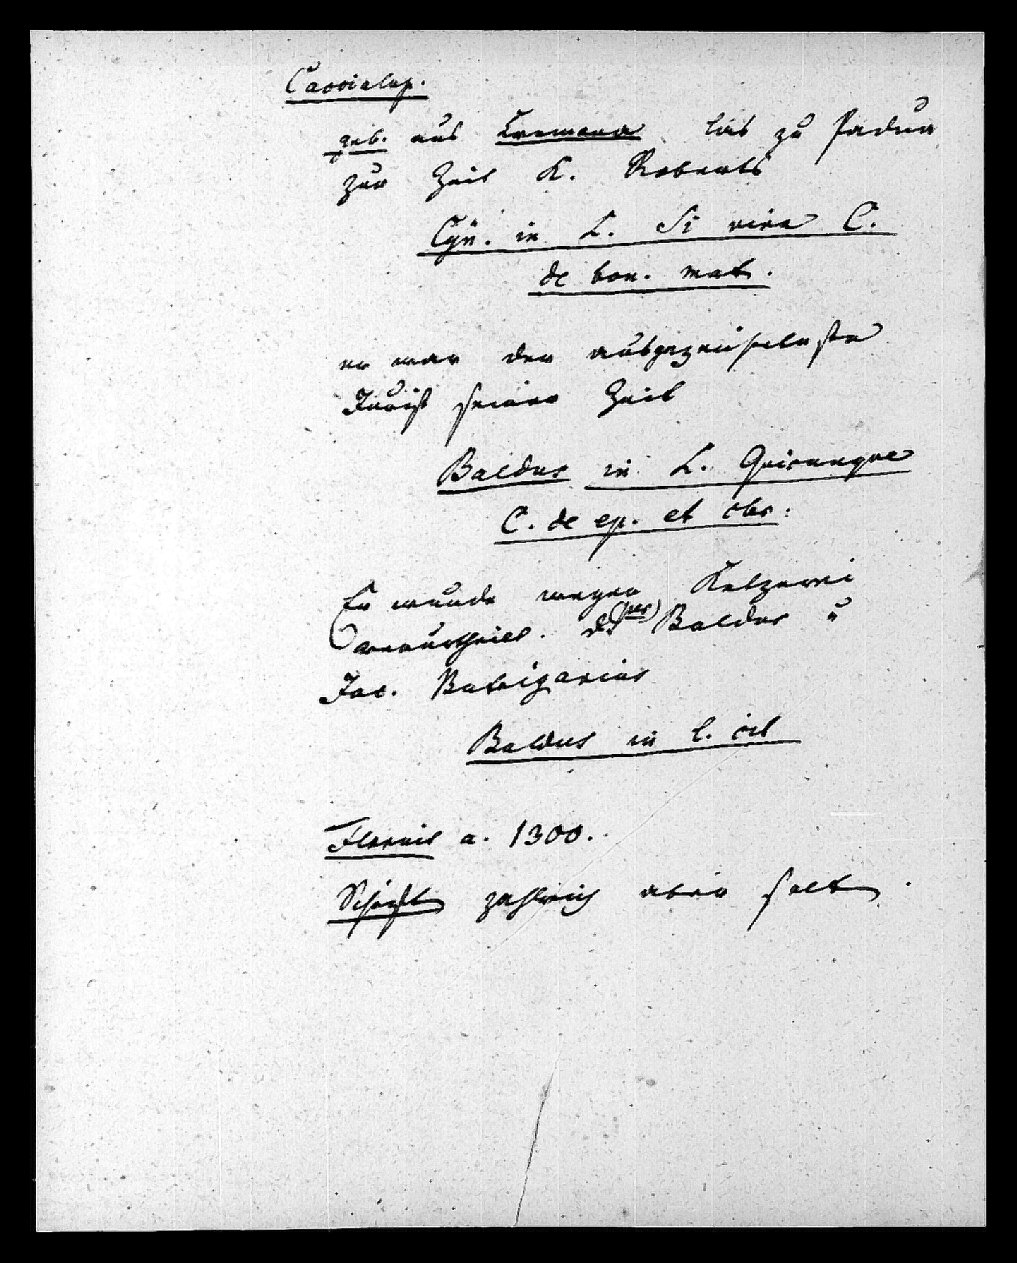 Caccialup.
geb. aus Cremona las zu Padua
zur Zeit K. Roberts
Cyn. in L. Si vira C.
de bon. mat.
er war der ausgezeichnetste
Jurist seiner Zeit
Baldus in L. Quicunque
C. de ep. et cler:
Er wurde wegen Ketzerei
verurtheilt. Baldus u
Jac. Butrigarius
Baldus in l. cit
Floruit a. 1300.
Schrift zahlreich aber selten.